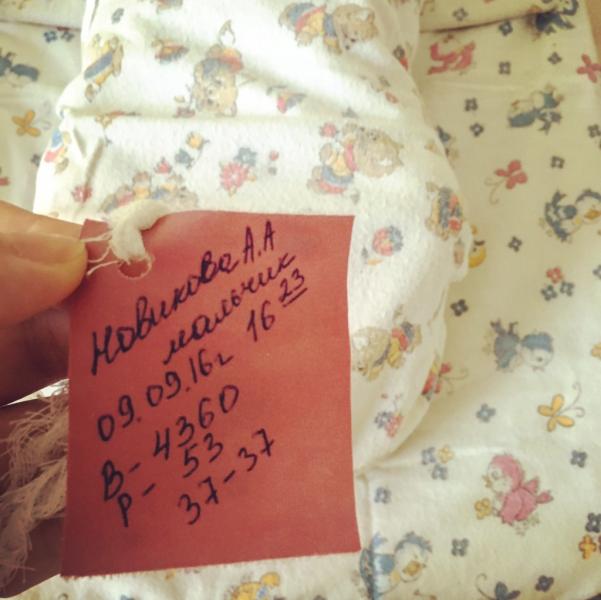 Новикова А.А
мальчик
09.09.16г 16 23
В - 4360
Р - 53
37-37